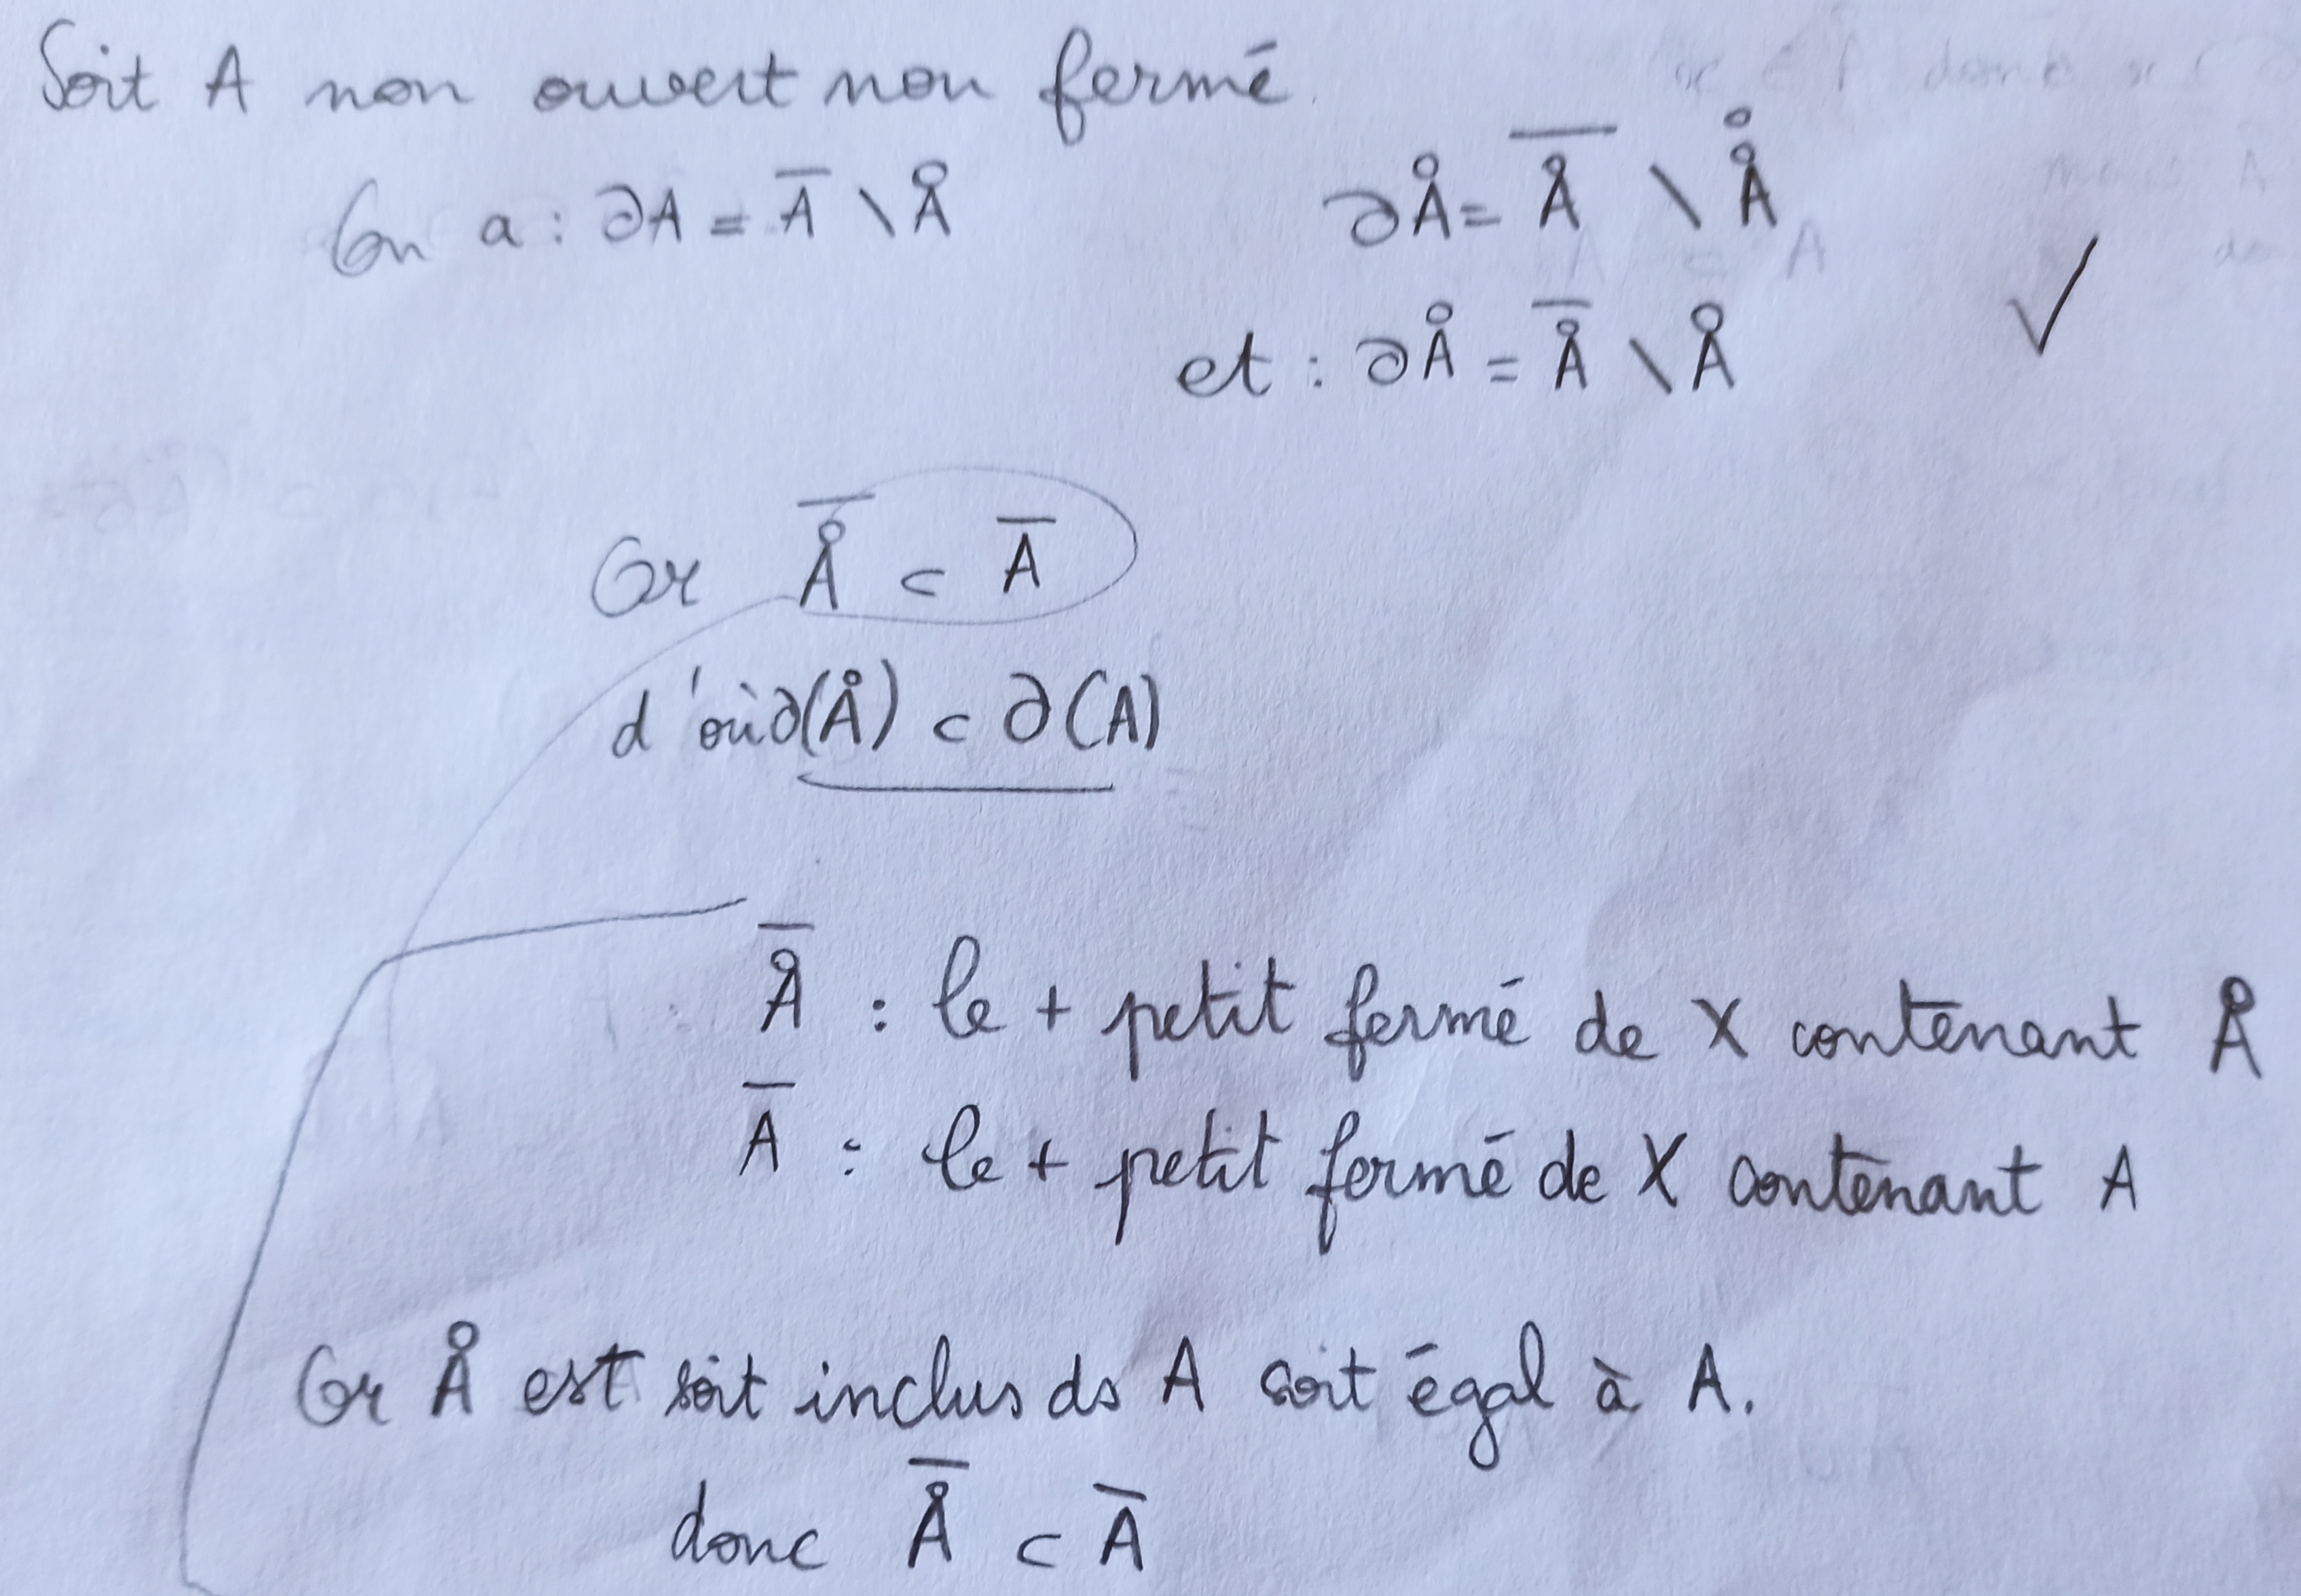 Soit A non ouvert non fermé.
On a : ∂A = A̅ \ Å
∂Å = Å̅ \ Å̊
et : ∂Å = Å̅ \ Å ✓
Or Å̅ ⊂ A̅
d'où ∂(Å) ⊂ ∂(A)
Å̅ : le + petit fermé de X contenant Å
A̅ : le + petit fermé de X contenant A
Or Å est soit inclus ds A soit égal à A.
donc Å̅ ⊂ A̅